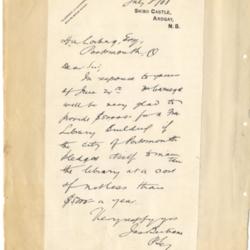 July 3/01
SKIBO CASTLE,
ARDGAY,
N.B.
Geo Esq,
Portsmouth, O
Dear Sir,
In response to yours
of June 24th Mr Carnegie
will be very glad to
provide for a Free
Library Building if
the city of Portsmouth
pledges itself to maintain
the library at a cost
of not less than
$5000 a year.
Very respectfully yrs
Jas Bertram
P Sec